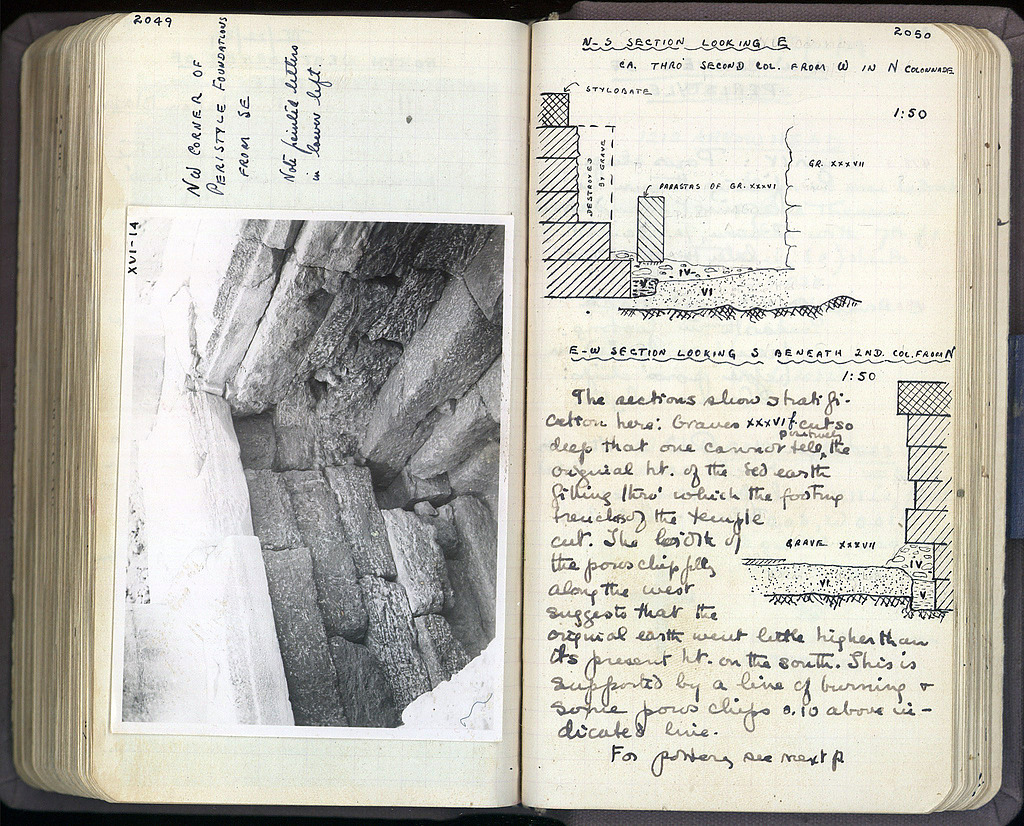 2049
NW CORNER OF
PERISTYLE FOUNDATIONS
FROM SE
Note painted letters
in lower left.
XVI-14
2050
N-S SECTION LOOKING E
CA. THRO' SECOND COL. FROM W IN N COLONNADE
1:50
STYLOBATE
DESTROYED
BY GRAVE
GR. XXXVII
PARASTAS OF GR. XXXVI
IV
V
VI
E-W SECTION LOOKING S BENEATH 2ND. COL. FROM N
1:50
The sections show stratifi-
cation here. Graves XXXVI f cut so
deep that one cannot tell positively the
original ht. of the red earth
filling thro' which the footing
trenches of the temple
cut. The of
the poros chip
along the west
suggests that the
original earth went little higher than
its present ht. on the south. This is
supported by a line of burning +
some poros chips 0.10 above in-
dicated line.
For pottery see next p
GRAVE XXXVII
IV
VI
V